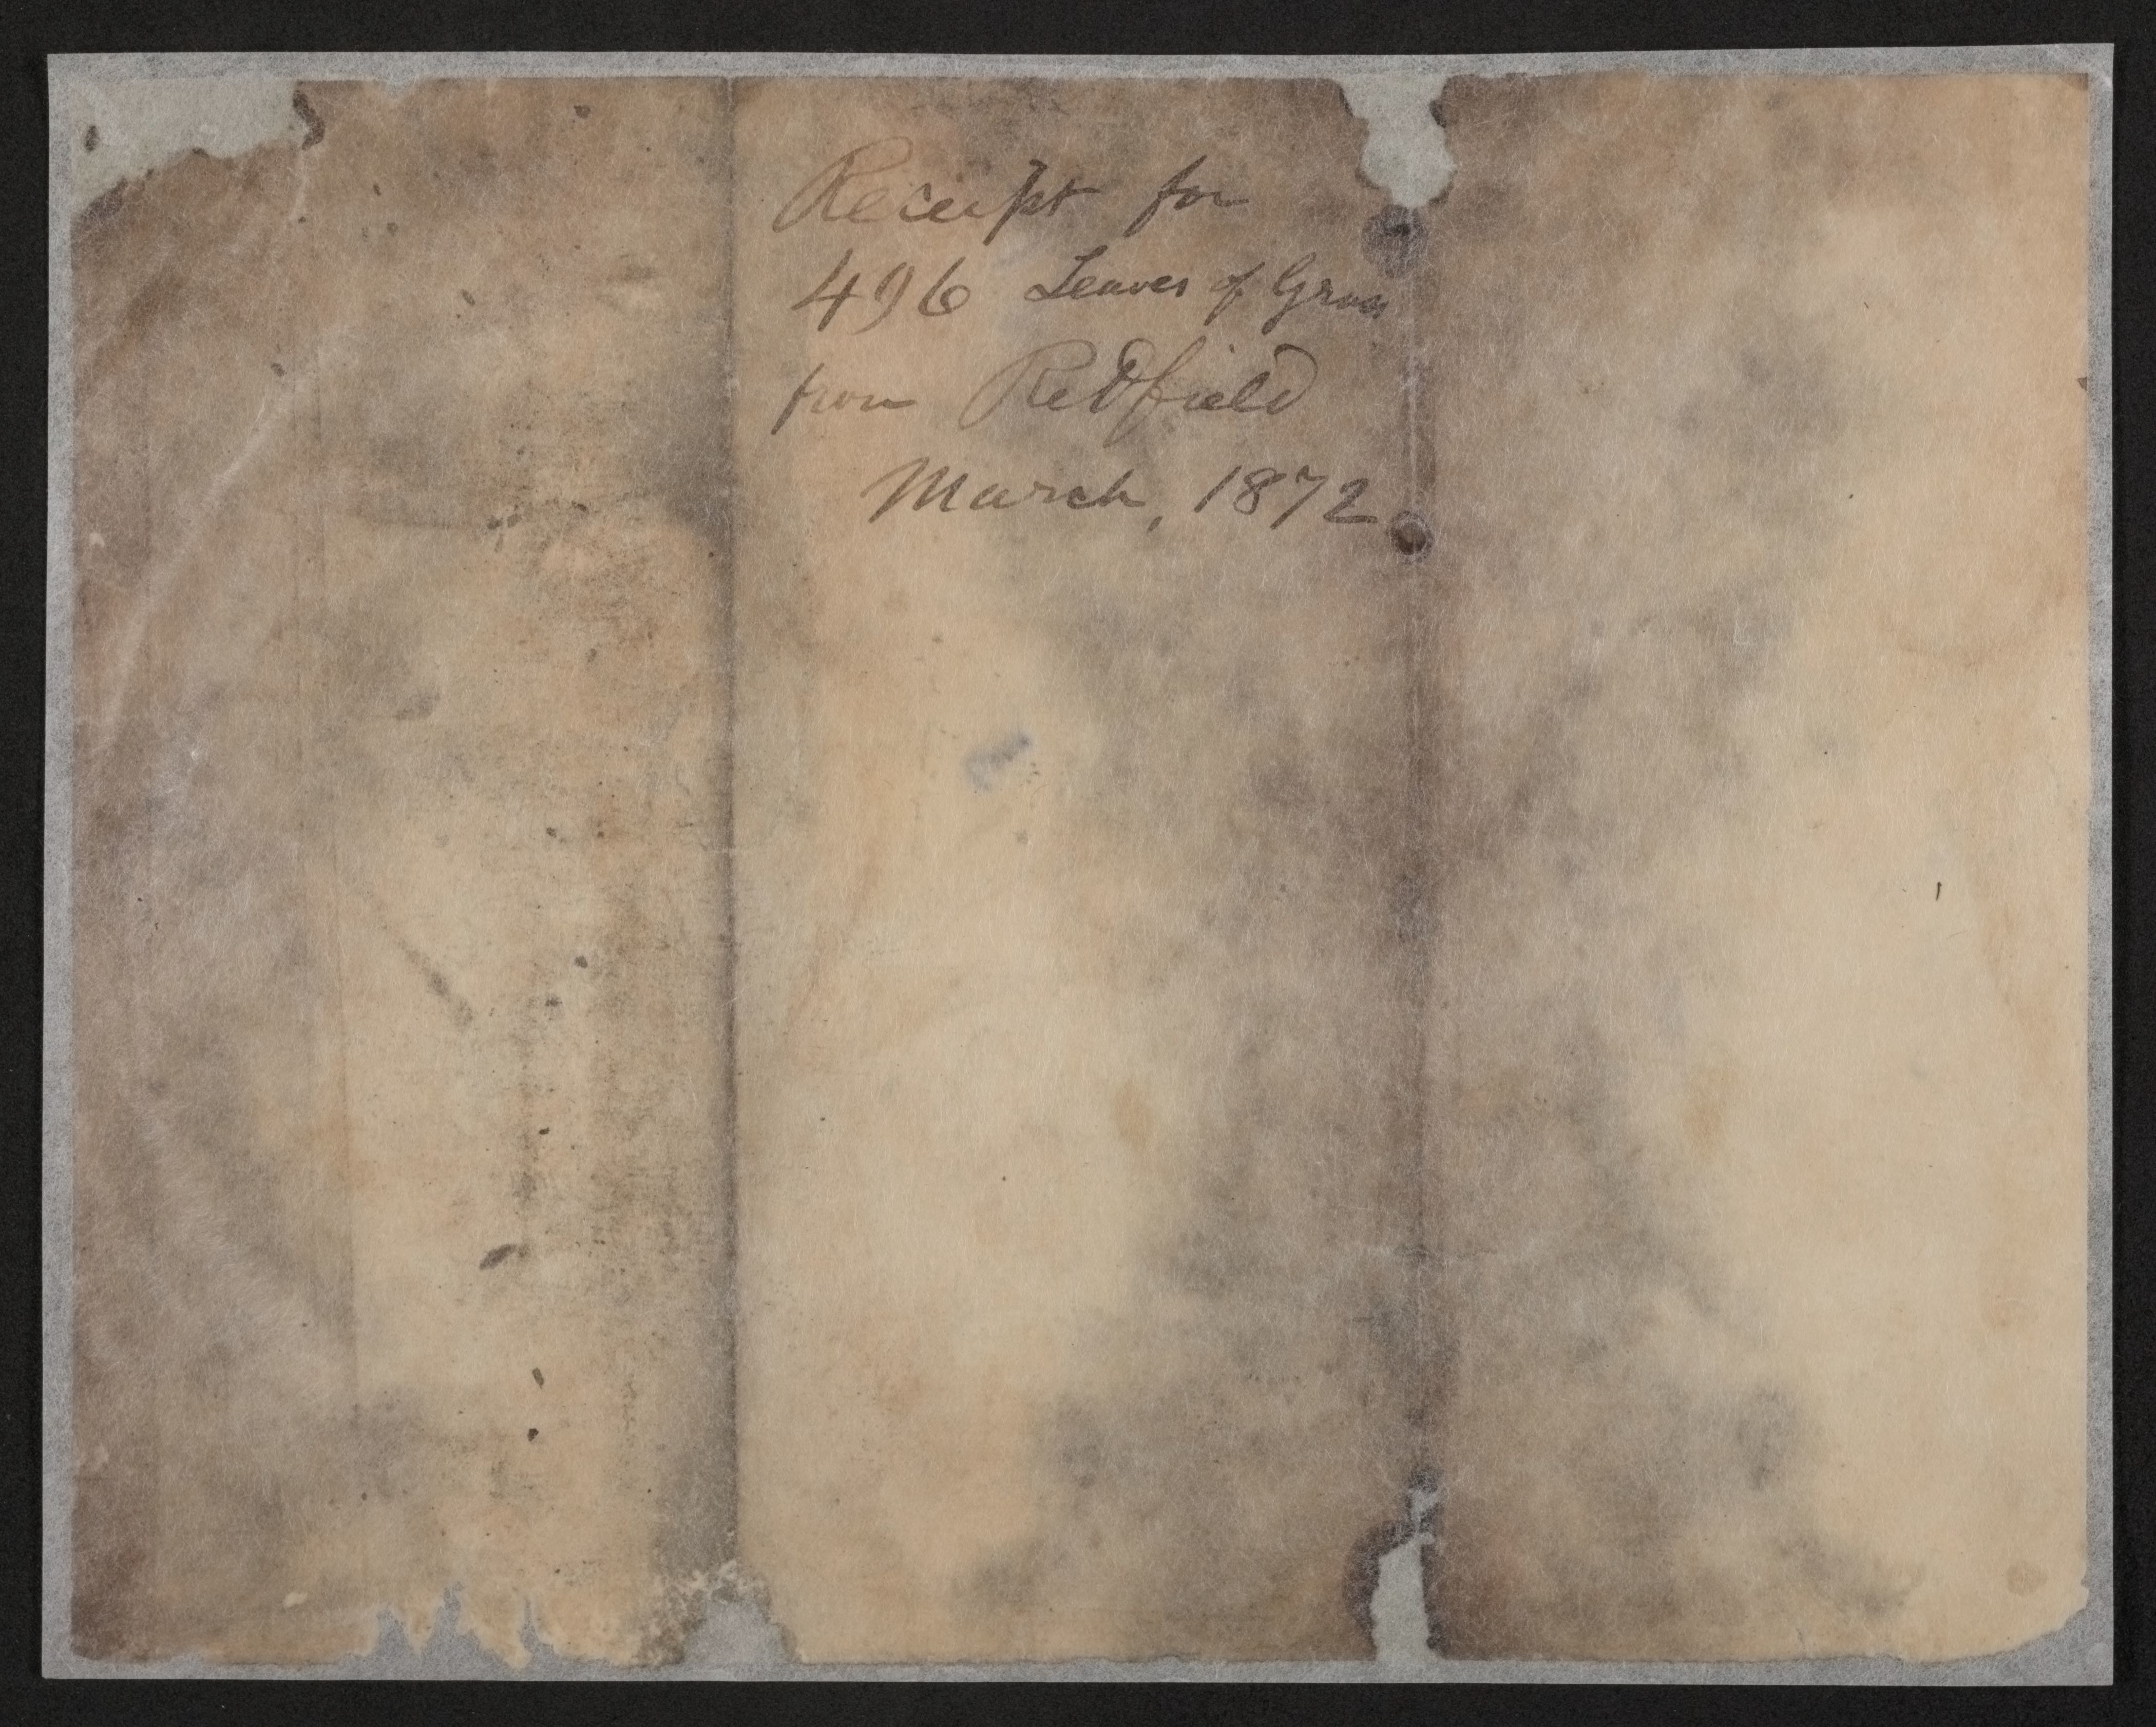 Receipt for
496 Leaves of Grass
from Redfield
March, 1872.